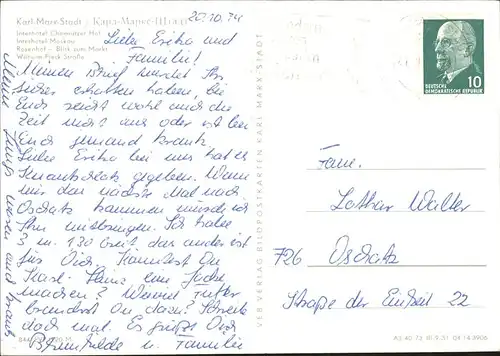 Karl-Marx-Stadt · Карл-Маркс-Штадт
Interhotel Chemnitzer Hof
Interhotel Moskau
Rosenhof – Blick zum Markt
Wilhelm-Pieck-Straße
20.10.74
Liebe Erika und
Familie!
Meinen Brief werdet Ihr
sicher erhalten haben, bei
Euch reicht wohl auch die
Zeit nicht aus oder ist bei
Euch jemand krank.
Liebe Erika bei uns hat es
gegeben. Wenn
wir das nächste Mal nach
Oschatz kommen würde ich
Ihn mitbringen. Ich habe
3 m 1.30 breit das andere ist
für Dich. Könntest Du
Karl-Heinz eine Jacke
machen? Wieviel Futter
brauchst Du dazu? Schreib
doch mal. Es grüßt Dich
Brunhilde u. Familie
VEB VERLAG BILDPOSTKARTEN KARL-MARX-STADT
DEUTSCHE
DEMOKRATISCHE REPUBLIK
10
Fam.
Lothar Walter
726 Oschatz
Straße der Einheit 22
A3 40 73 III 9 31 04 14 3906